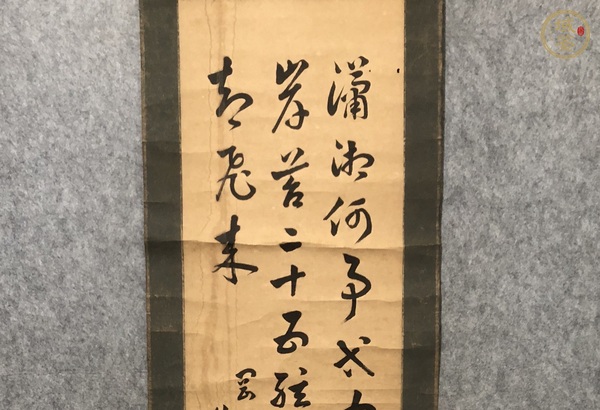 瀟湘何事等
岸苔二十五絃
却飛来